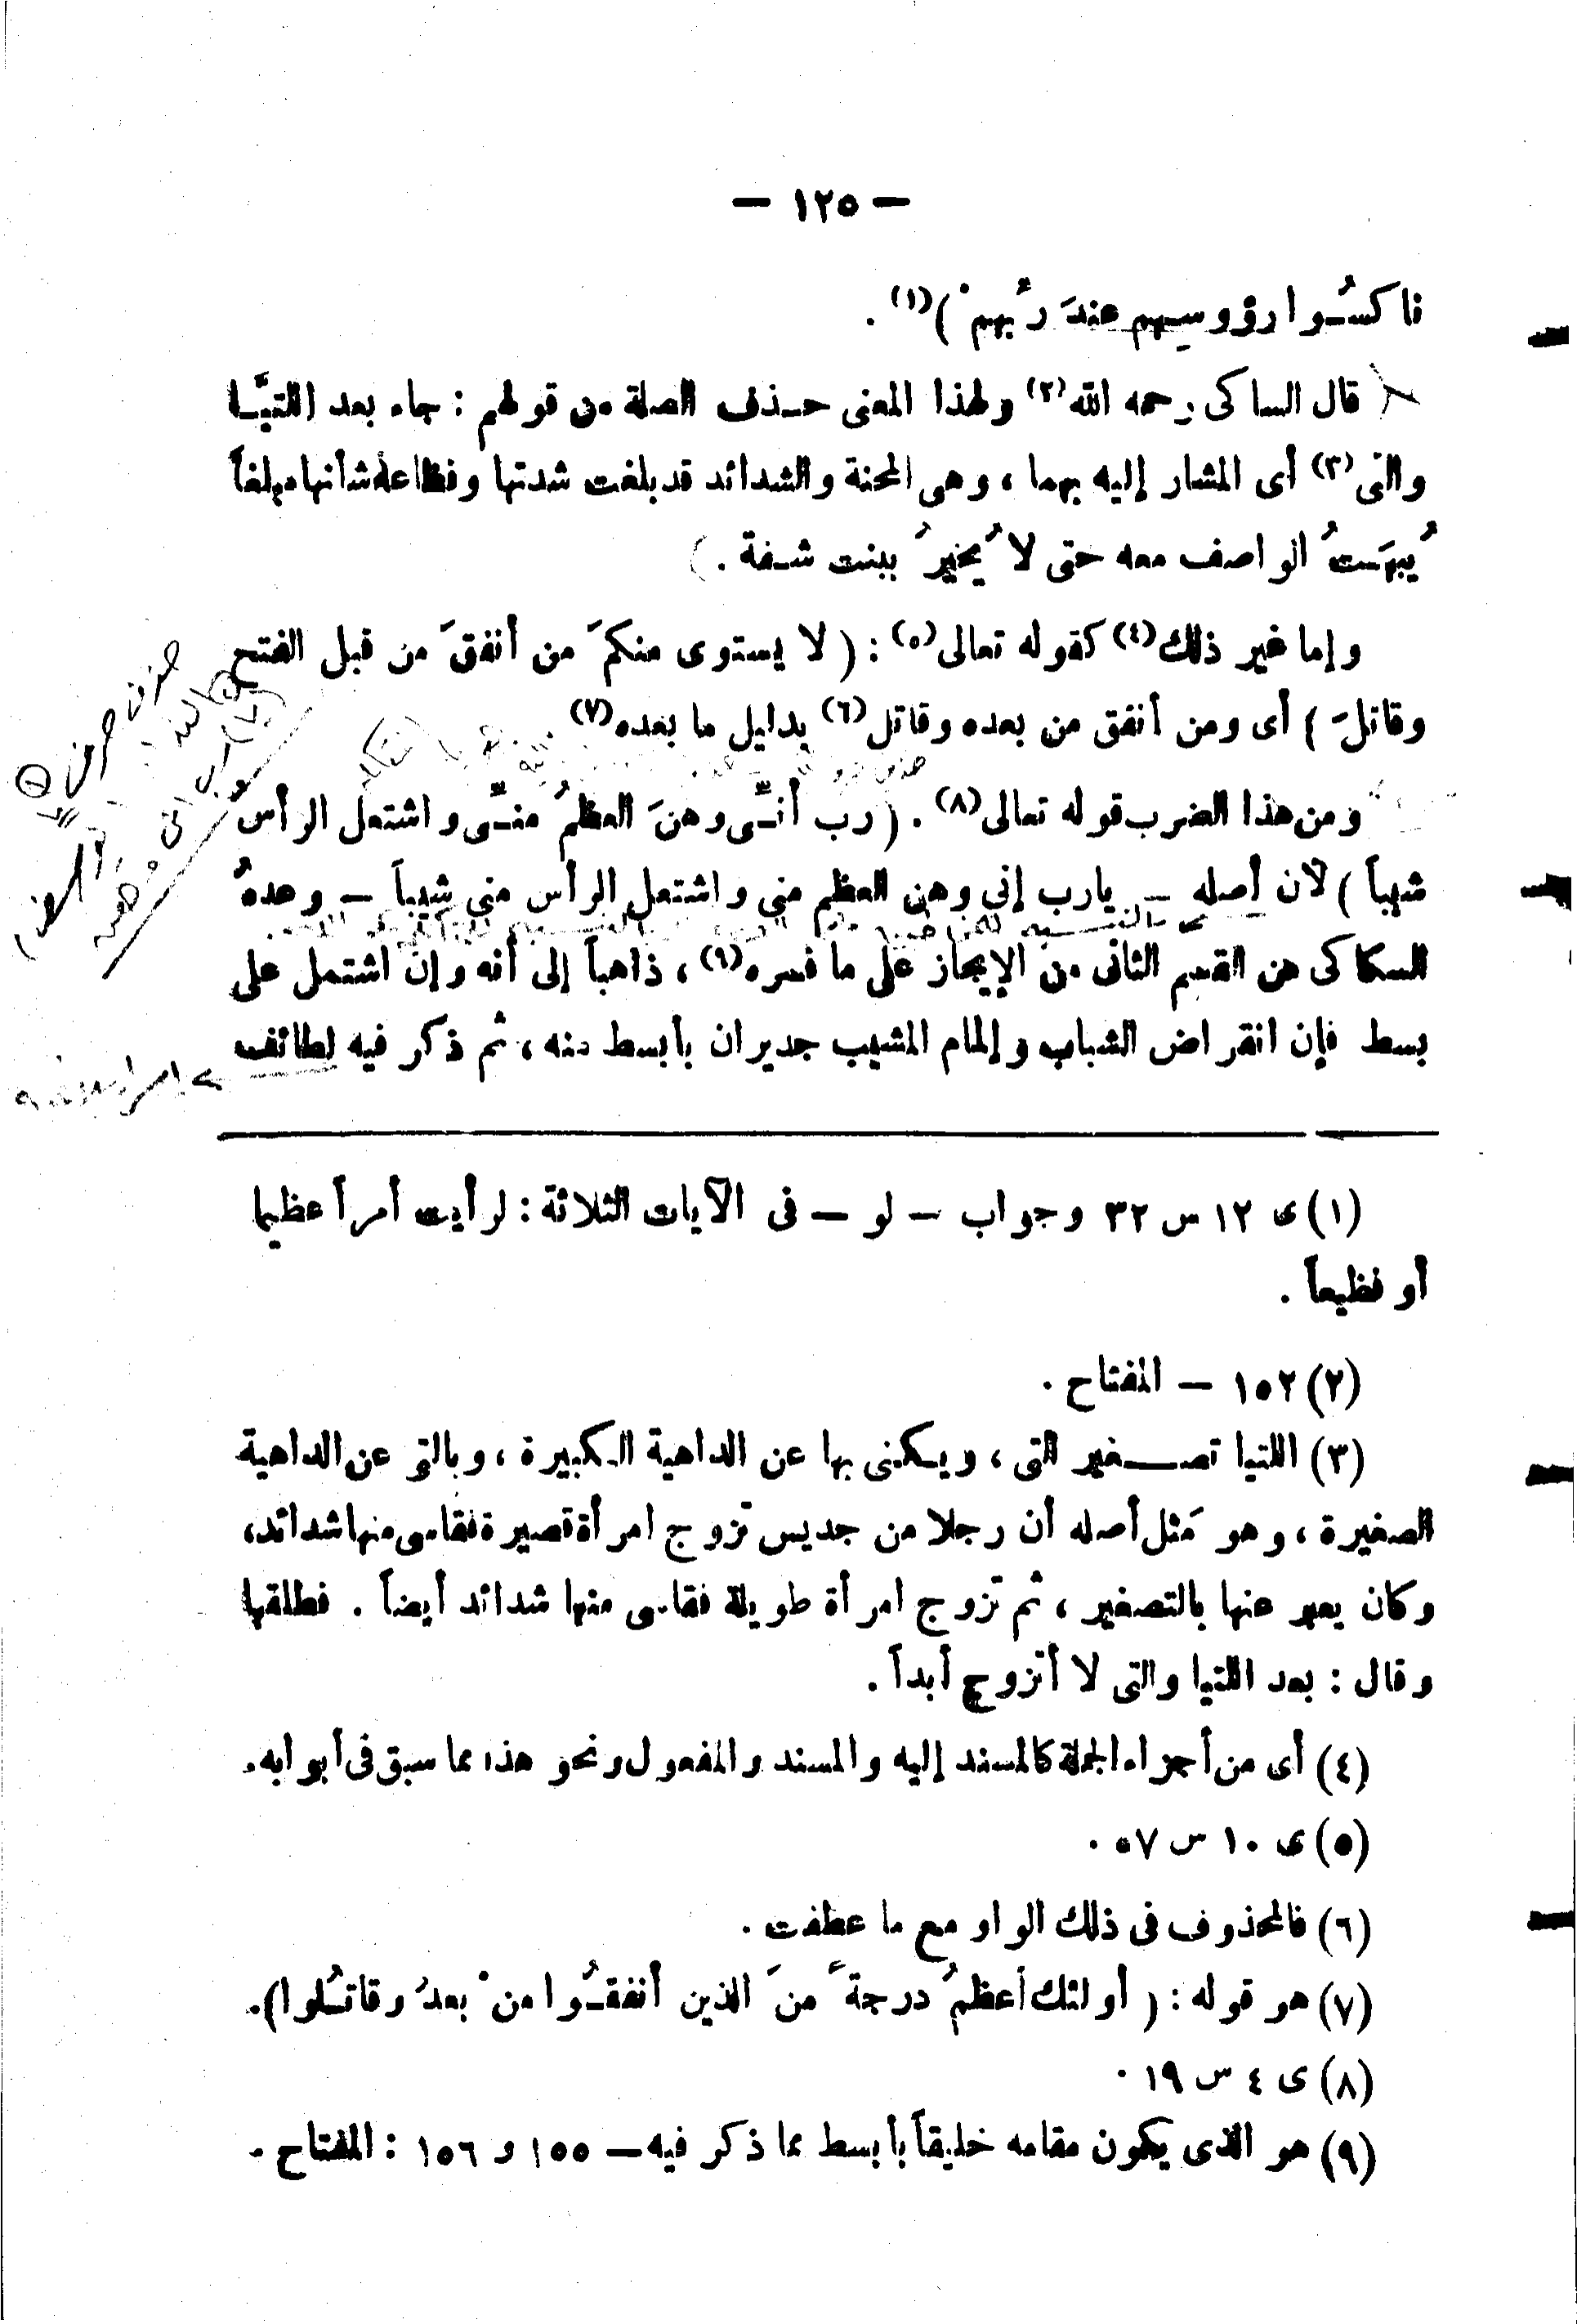 — ١٢٥ —
ناكسُوا رؤوسِهم عندَ ربِّهمْ )(١) .
قال السكاكى رحمه الله(٢) ولهذا المعنى حذف الصلة من قولهم : جاء بعد اللتيَّا
والتى(٣) أى المشار إليه بهما ، وهى المحنة والشدائد قد بلغت شدتها وفظاعة شأنها مبلغاً
يُبهَتُ الواصف معه حتى لا يُحيرُ ببنت شفة .
وإما غير ذلك(٤) كقوله تعالى(٥) : ( لا يستوى منكمَ من أنفقَ من قبل الفتح
وقاتلَ ) أى ومن أنفق من بعده وقاتل(٦) بدليل ما بعده(٧) .
ومن هذا الضرب قوله تعالى(٨) . ( رب أنِّى وهنَ العظمُ منِّى واشتعل الرأس
شيباً ) لأن أصله — يارب إنى وهن العظم منى واشتعل الرأس منى شيباً — وعدهُ
السكاكى من القسم الثانى من الإيجاز على ما فسره(٩) ، ذاهباً إلى أنه وإن اشتمل على
بسط فإن انقراض الشباب وإلمام المشيب جديران بأبسط منه ، ثم ذكر فيه لطائف
(١) ى ١٢ س ٣٢ وجواب — لو — فى الآيات الثلاثة : لرأيت أمراً عظيما
أو فظيعاً .
(٢) ١٥٢ — المفتاح .
(٣) اللتيا تصغير التى ، ويكنى بها عن الداهية الكبيرة ، وبالتى عن الداهية
الصغيرة ، وهو مَثل أصله أن رجلا من جديس تزوج امرأة قصيرة فقاسى منها شدائد ،
وكان يعبر عنها بالتصغير ، ثم تزوج امرأة طويلة فقاسى منها شدائد أيضاً . فطلقها
وقال : بعد اللتيا والتى لا أتزوج أبداً .
(٤) أى من أجزاء الجملة كالمسند إليه والمسند والمفعول ونحو هذا مما سبق فى أبوابه .
(٥) ى ١٠ س ٥٧ .
(٦) فالمحذوف فى ذلك الواو مع ما عطفت .
(٧) هو قوله : ( أولئك أعظمُ درجةً منَ الذين أنفقُوا منْ بعدُ وقاتلُوا ) .
(٨) ى ٤ س ١٩ .
(٩) هو الذى يكون مقامه خليقاً بأبسط مما ذكر فيه — ١٥٥ و ١٥٦ : المفتاح .